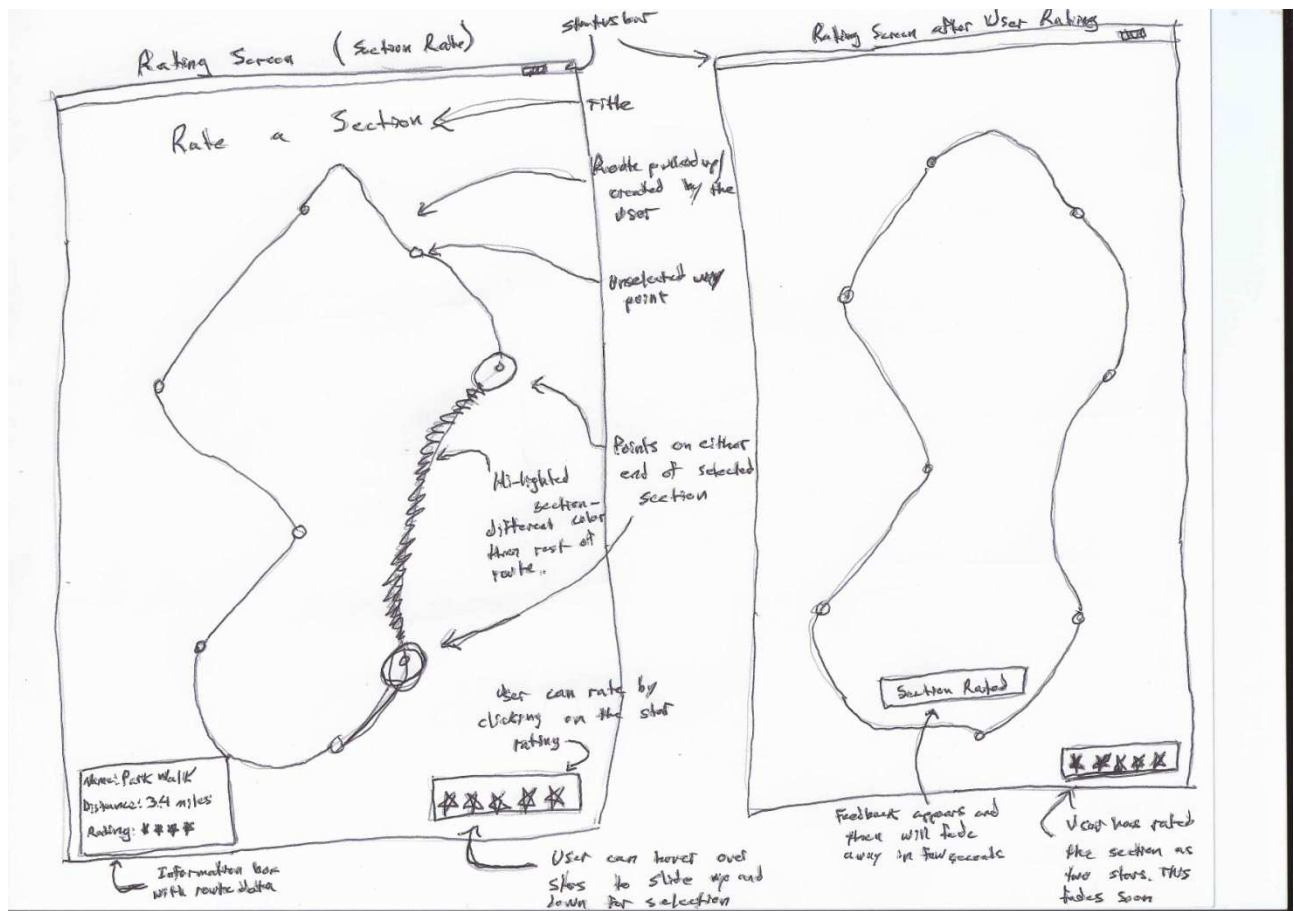 Rating Screen (Section Rate)
status bar
Rating Screen after User Rating
Rate a Section
Title
Route pulled up/
created by the
User
Unselected way
point
Points on either
end of selected
section
Hi-lighted
section-
different color
then rest of
route..
User can rate by
clicking on the star
rating
Name: Park Walk
Distance: 3.4 miles
Rating: ★★★★
Information box
with route data
User can hover over
stars to slide up and
down for selection
Section Rated
Feedback appears and
then will fade
away in few seconds
User has rated
the section as
two stars. This
fades soon